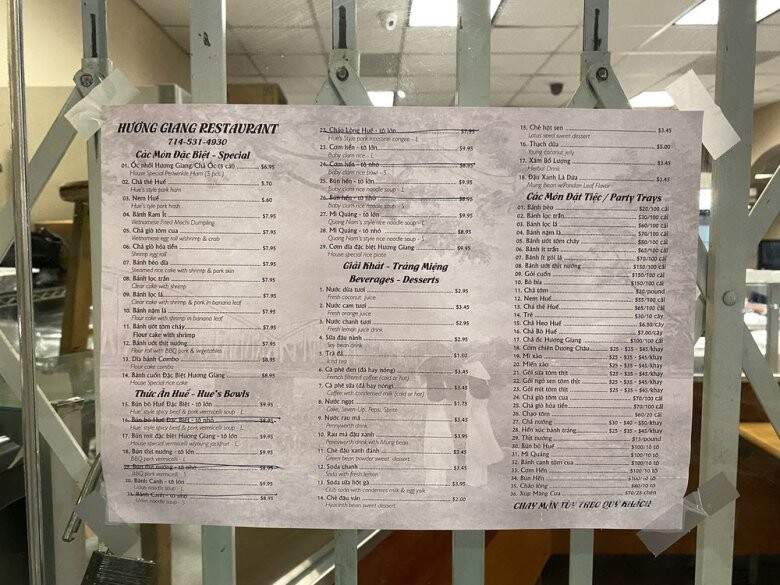 HƯƠNG GIANG RESTAURANT
714-531-4930
Các Món Đặc Biệt - Special
01. Ốc nhồi Hương Giang/Chả Ốc (5 cái) $6.95
House Special Periwinkle Ham (5 pcs.)
02. Chả thẻ Huế $.70
Hue's style pork ham
03. Nem Huế $.60
Hue's style pork hash
04. Bánh Ram Ít $7.95
Vietnamese Fried Mochi Dumpling
05. Chả giò tôm cua $7.95
Vietnamese egg roll w/shrimp & crab
06. Chả giò hỏa tiễn $7.95
Shrimp egg roll
07. Bánh bèo dĩa $7.95
Steamed rice cake with shrimp & pork skin
08. Bánh lọc trần $7.95
Clear cake with shrimp
09. Bánh lọc lá $7.95
Clear cake with shrimp & pork in banana leaf
10. Bánh nậm lá $7.95
Flour cake with shrimp in banana leaf
11. Bánh ướt tôm cháy $7.95
Flour cake with shrimp
12. Bánh ướt thịt nướng $7.95
Flour roll with BBQ pork & vegetables
13. Dĩa bánh Combo $8.95
Flour cake combo
14. Bánh cuốn Đặc Biệt Hương Giang $8.95
House Special rice cake
Thức Ăn Huế - Hue's Bowls
15. Bún bò Huế Đặc Biệt - tô lớn $9.95
Hue' style spicy beef & pork vermicelli soup - L
16. Bún bò Huế Đặc Biệt - tô nhỏ $8.95
Hue' style spicy beef & pork vermicelli soup - S
17. Bún mít đặc biệt Hương Giang - tô lớn $9.95
18. Bún thịt nướng - tô lớn $9.95
BBQ pork vermicelli - L
19. Bún thịt nướng - tô nhỏ $8.95
BBQ pork vermicelli - S
20. Bánh Canh - tô lớn $9.95
Udon noodle soup - L
21. Bánh Canh - tô nhỏ $8.95
Udon noodle soup - S
22. Cháo Lòng Huế - tô lớn $7.95
Hue's Style pork intestine congee - L
23. Cơm hến - tô lớn $9.95
Baby clam rice - L
24. Cơm hến - tô nhỏ $8.95
Baby clam rice bowl - S
25. Bún hến - tô lớn $9.95
Baby clam rice noodle soup - L
26. Bún hến - tô nhỏ $8.95
Baby clam rice noodle soup - S
27. Mì Quảng - tô lớn $9.95
Quang Nam's style rice noodle soup - L
28. Mì Quảng - tô nhỏ $8.95
Quang Nam's style rice noodle soup - S
29. Cơm dĩa đặc biệt Hương Giang $9.95
House special rice plate
Giải Khát - Tráng Miệng
Beverages - Desserts
1. Nước dừa tươi $2.95
Fresh coconut juice
2. Nước cam tươi $3.45
Fresh orange juice
3. Nước chanh tươi $2.95
Fresh lemon juice drink
4. Sữa đậu nành $2.95
Soy bean drink
5. Trà đá $1.02
Iced tea
6. Cà phê đen (đá hay nóng) $3.45
French filtered coffee (cold or hot)
7. Cà phê sữa (đá hay nóng) $3.45
Coffee with condensed milk (cold or hot)
8. Nước ngọt $1.75
Coke, Seven-Up, Pepsi, Sprite
9. Nước rau má $3.45
Pennyworth drink
10. Rau má đậu xanh $3.95
Pennyworth drink with Mung bean
11. Chè đậu xanh đánh $3.45
Green bean powder sweet dessert
12. Soda chanh $3.45
Soda with fresh lemon
13. Soda sữa hột gà $3.95
Club soda with condensed milk & egg yolk
14. Chè đậu ván $2.00
Hyacinth bean sweet dessert
15. Chè hạt sen $3.45
Lotus seed sweet dessert
16. Thạch dừa $5.00
Young coconut jelly
17. Xâm Bổ Lượng $3.45
Herbal Drink
18. Đậu Xanh Lá Dứa $3.45
Mung bean w/Pandan Leaf Flavor
Các Món Đặt Tiệc / Party Trays
01. Bánh bèo $70/100 cái
02. Bánh lọc trần $50/100 cái
03. Bánh lọc lá $60/100 cái
04. Bánh nậm lá $70/100 cái
05. Bánh ướt tôm cháy $80/100 cái
06. Bánh ít trần $65/100 cái
07. Bánh ít gói lá $70/100 cái
08. Bánh ướt thịt nướng $150/100 cái
09. Gỏi cuốn $150/100 cái
10. Bò bía $150/100 cái
11. Chả tôm
12. Nem Huế $55/100 cái
13. Chả thẻ Huế $65/100 cái
14. Tré $30/10 cây
15. Chả Heo Huế $6.50/cây
16. Chả Bò Huế $7.00/cây
17. Chả ốc Hương Giang $100/100 cái
18. Cơm chiên Dương Châu $25 - $35 - $45/khay
19. Mì xào $25 - $35 - $45/khay
20. Miến xào $25 - $35 - $45/khay
21. Gỏi sứa tôm thịt $25 - $35 - $45/khay
22. Gỏi ngó sen tôm thịt $25 - $35 - $45/khay
23. Gỏi mít tôm thịt $25 - $35 - $45/khay
24. Chả giò tôm cua $70/100 cái
25. Chả giò hỏa tiễn $70/100 cái
26. Chạo tôm $60/20 cái
27. Chả nướng $30 - $40 - $50/khay
28. Hến xúc bánh tráng $25 - $35 - $45/khay
29. Thịt nướng $13/pound
30. Bún bò Huế $100/10 tô
31. Mì Quảng $100/10 tô
32. Bánh canh tôm cua $100/10 tô
33. Cơm Hến $100/10 tô
34. Bún Hến $100/10 tô
35. Cháo lòng $80/10 tô
36. Xúp Măng Cua $70/25 chén
CHAY MẶN TÙY THEO QUÝ KHÁCH